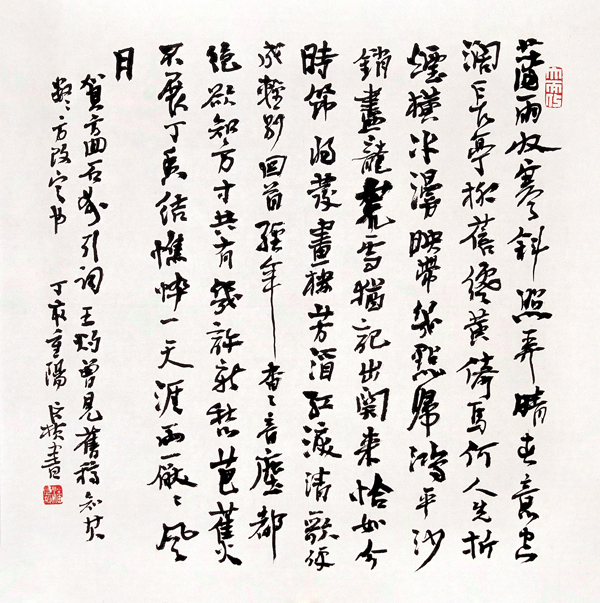 薄雨收寒斜照弄晴春意空
闊長亭柳蓓纔黄倚馬何人先折
煙横水漫映帶幾點歸鴻平沙
銷盡龍荒雪猶記出關來恰如今
時節將發畫樓芳酒紅淚清歌便
成輕別回首經年杳々音塵都
絕欲知方寸共有幾許新愁芭蕉
不展丁香結憔悴一天涯兩厭々風
月
賀方回石州引詞王灼曾見舊稿知其
方改定書 丁亥重陽 書